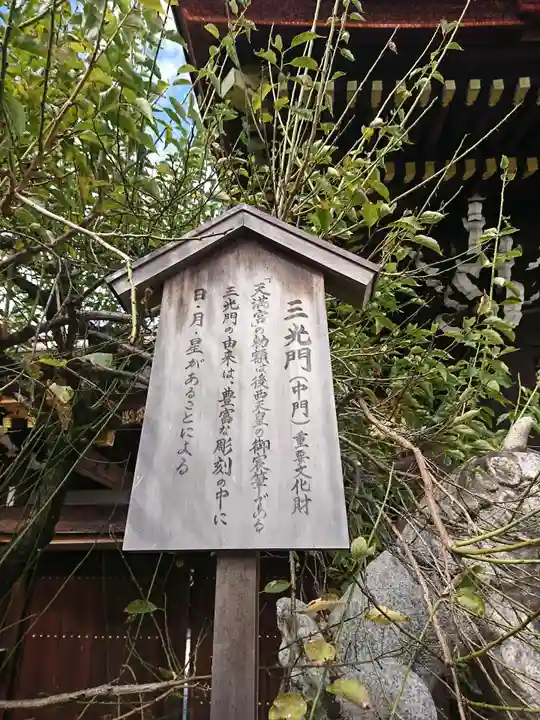 三光門（中門）重要文化財
「天満宮」の勅額は後西天皇の御宸筆である
三光門の由来は、豊富な彫刻の中に
日・月・星があることによる